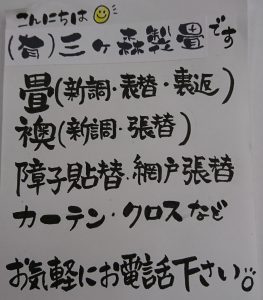 こんにちは
(有)三ヶ森製畳です
畳(新調・表替・裏返)
襖(新調・張替)
障子貼替・網戸張替
カーテン・クロスなど
お気軽にお電話下さい。